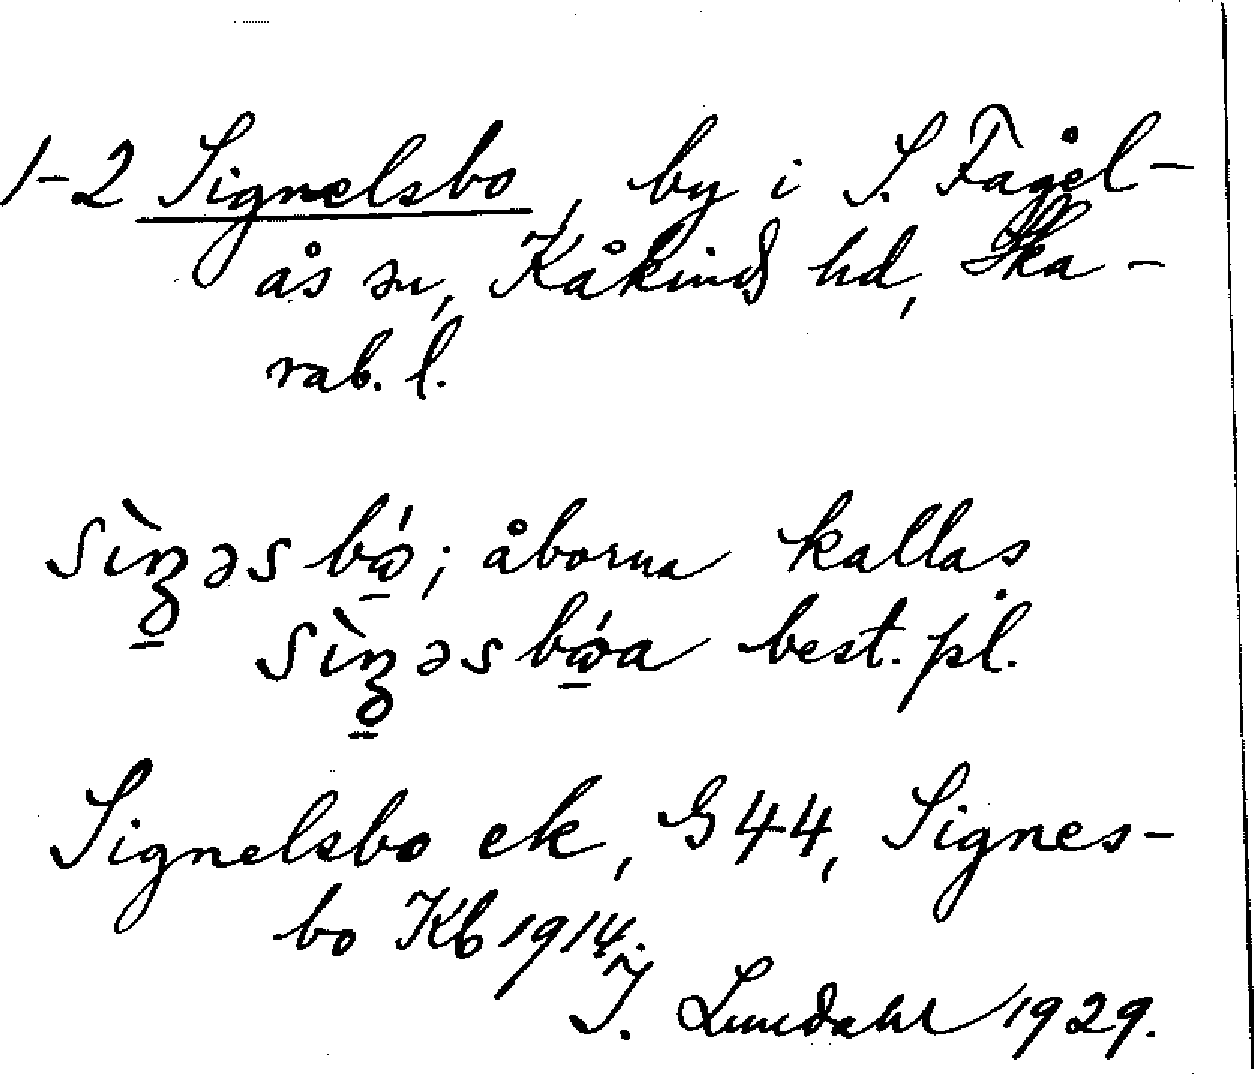 1-2 Signelsbo, by i S. Fågel-
ås sn, Kåkinds hd, Ska-
rab. l.
åborna kallas
best. pl.
Signelsbo ek, G 44, Signes-
bo Kb 1914.
I. Lundahl 1929.